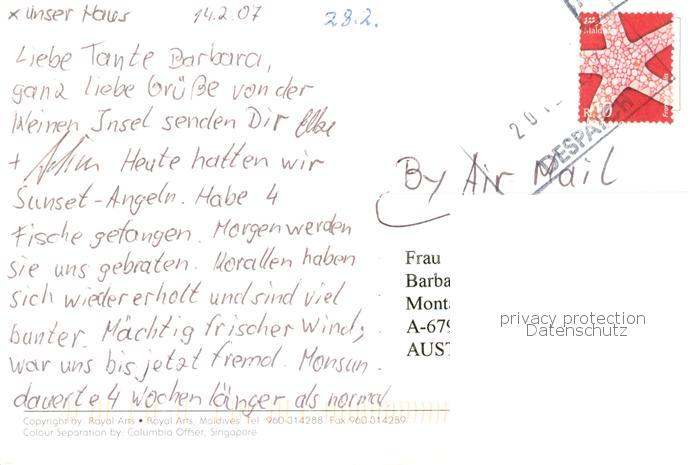 x unser Haus 14.2.07 28.2.
Liebe Tante Barbara,
ganz liebe Grüße von der
kleinen Insel senden Dir
+ Heute hatten wir
Sunset-Angeln. Habe 4
Fische gefangen. Morgen werden
sie uns gebraten. Korallen haben
sich wieder erholt und sind viel
bunter. Mächtig frischer Wind,
war uns bis jetzt fremd. Monsun
dauerte 4 Wochen länger als normal.
Copyright by: Royal Arts • Royal Arts, Maldives Tel: 960-314288 Fax 960-314289
Colour Separation by: Columbia Offset, Singapore
Maldives
DESPATCH
By Air Mail
Frau
Barba
Monta
A-679
AUST
privacy protection
Datenschutz